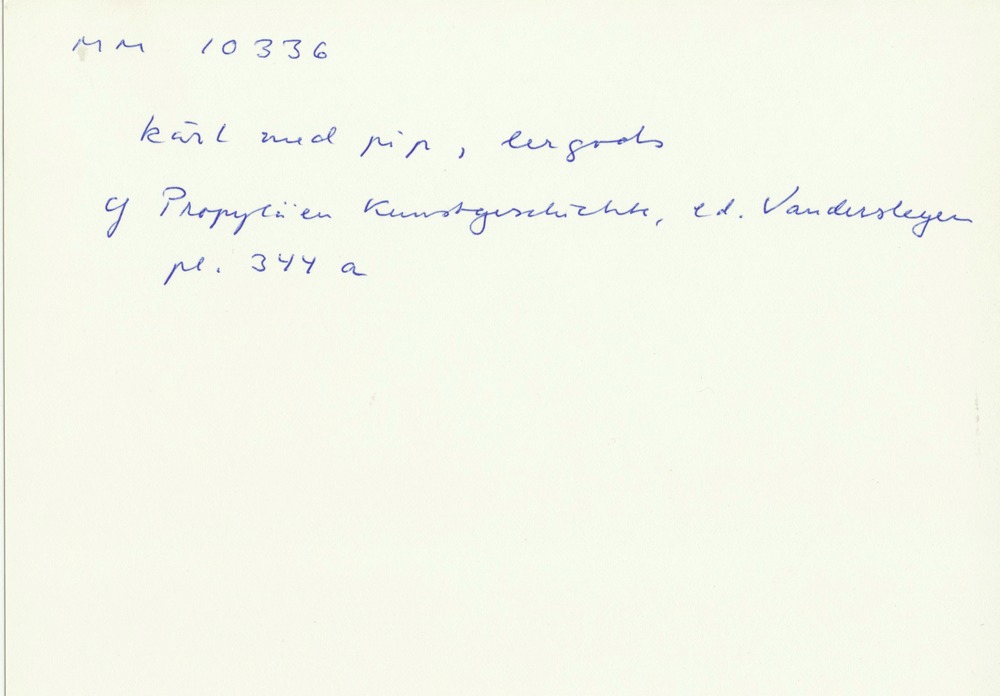 MM 10336
kärl med pip, lergods
cf Propyläen Kunstgeschichte, ed. Vandersleyen
pl. 344 a